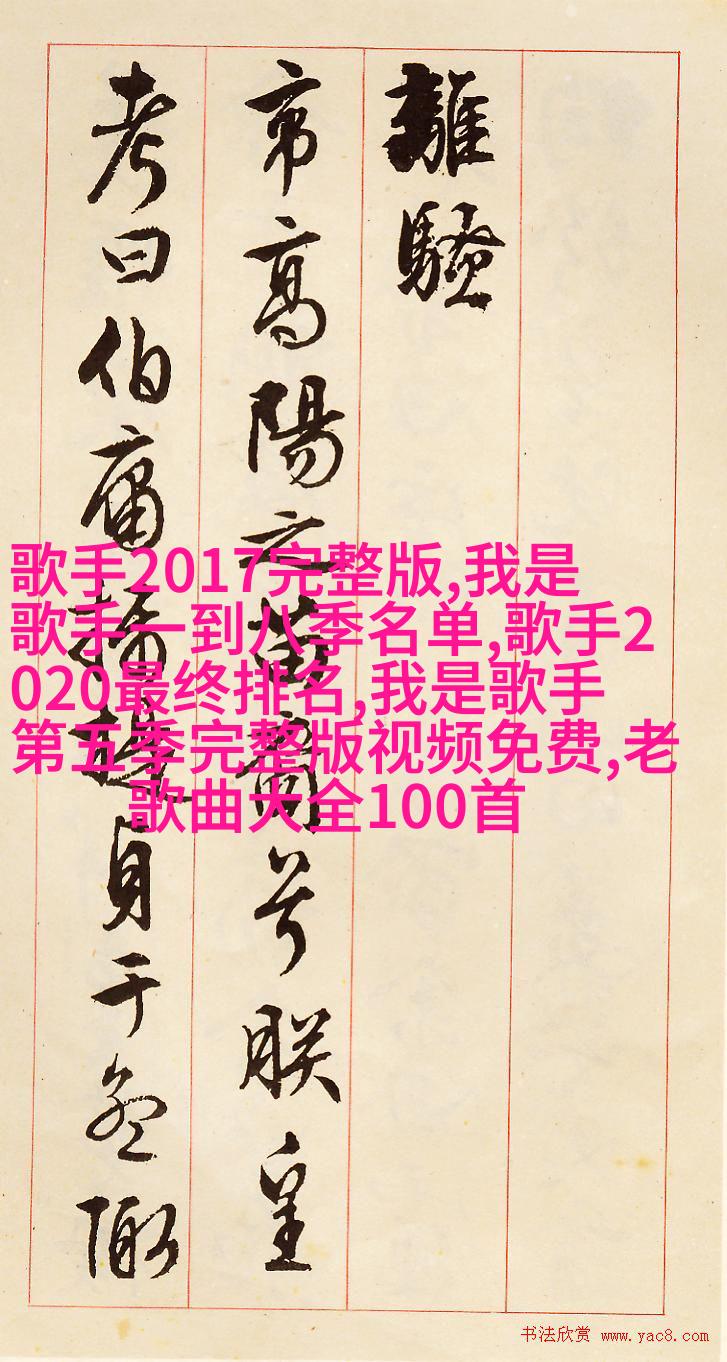 離騷
帝高陽之苗裔兮朕皇
考曰伯庸攝提貞于孟陬
歌手2017完整版,我是
歌手一到八季名单,歌手2
020最终排名,我是歌手
第五季完整版视频免费,老
歌曲大全100首
书法欣赏 www.yac8.com